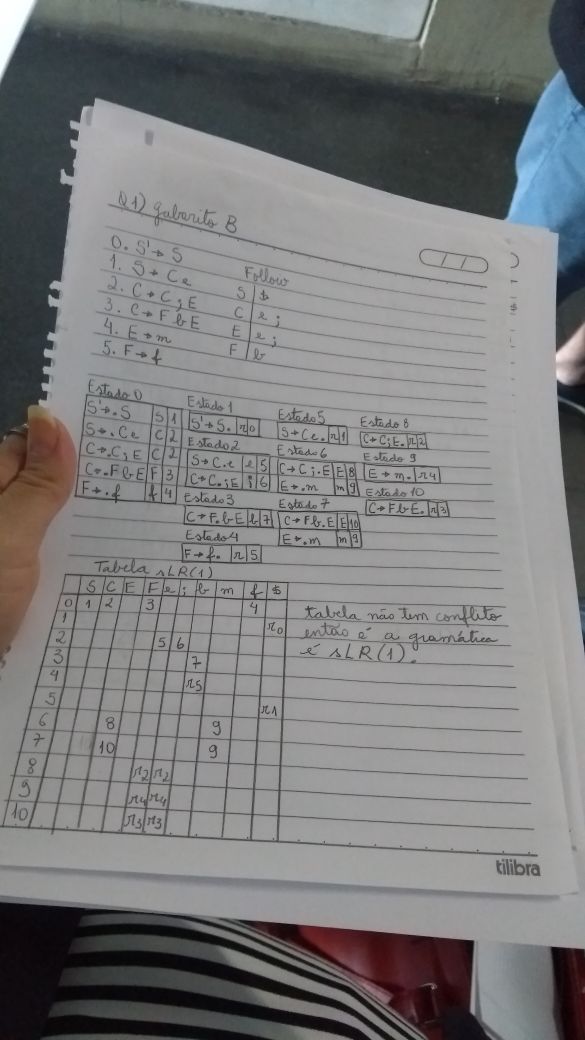 Q1) gabarito B
0. S' → S
1. S → Ce
2. C → C;E
3. C → FbE
4. E → m
5. F → f
Follow
S | $
C | e ;
E | e ;
F | b
Estado 0
S' → .S | S | 1
S → .Ce | C | 2
C → .C;E | C | 2
C → .FbE | F | 3
F → .f | f | 4
Estado 1
S' → S. | r | 0
Estado 2
S → C.e | e | 5
C → C.;E | ; | 6
Estado 3
C → F.bE | b | 7
Estado 4
F → f. | r | 5
Estado 5
S → Ce. | r | 1
Estado 6
C → C;.E | E | 8
E → .m | m | 9
Estado 7
C → Fb.E | E | 10
E → .m | m | 9
Estado 8
C → C;E. | r | 2
Estado 9
E → m. | r | 4
Estado 10
C → FbE. | r | 3
Tabela SLR(1)
S C E F e ; b m f $
0 1 2 3 4
1 r0
2 5 6
3 7
4 r5
5 r1
6 8 9
7 10 9
8 r2 r2
9 r4 r4
10 r3 r3
tabela não tem conflito
então é a gramática
é SLR(1).
tilibra